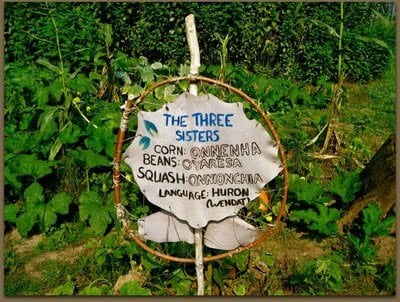 THE THREE
SISTERS
CORN: ONNENHA
BEANS: OYARESA
SQUASH: ONNIONCHIA
LANGUAGE: HURON
(WENDAT)